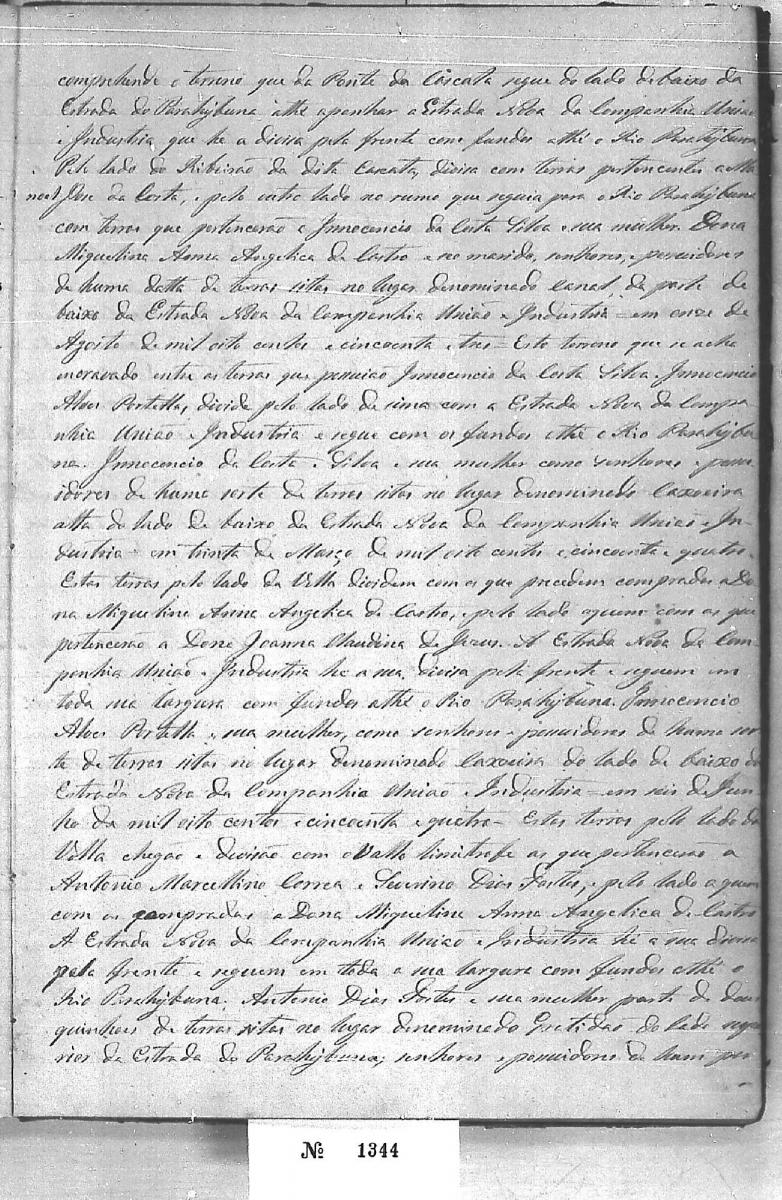 comprehende o terreno que da Ponte da Cascata segue do lado de baixo da
Estrada do Parahybuna athé apanhar a Estrada Nova da Companhia União
e Industria, que he a divisa pela frente com fundos athé o Rio Parahybuna
Pelo lado do Ribeirão da dita Cascata, divisa com terras pertencentes a Ma
noel José da Costa, e pelo outro lado no rumo que seguia para o Rio Parahybuna
com terras que pertencerão a Innocencio da Costa Silva e sua mulher. Dona
Miquelina Anna Angelica de Castro e no marido, senhores, e possuidores
de huma datta de terras sitas no lugar denominado Canal, da parte de
baixo da Estrada Nova da Companhia União e Industria = em onze de
Agosto de mil oito centos e cincoenta e tres = Este terreno que se acha
encravado entre as terras que possuião Innocencio da Costa Silva e Innocencio
Alves Portella, divide pelo lado de sima com a Estrada Nova da Compa
nhia União e Industria e segue com os fundos athé o Rio Parahybu
na. Innocencio da Costa e Silva e sua mulher como senhores e possu
idores de huma sorte de terras sitas no lugar denominado Caxoeira
alta do lado de baixo da Estrada Nova da Companhia União e In-
dustria = em trinta de Março de mil oito centos e cincoenta e quatro.
Estas terras pelo lado da Villa dividem com as que precedem compradas a Do
na Miquelina Anna Angelica de Castro, e pelo lado aquem com as que
pertencerão a Dona Joanna Claudina de Jesus. A Estrada Nova da Com-
panhia União e Industria he a sua divisa pela frente e seguem em
toda sua largura com fundos athé o Rio Parahybuna. Innocencio
Alves Portella e sua mulher, como senhores e possuidores de huma sor
te de terras sitas no lugar denominado Caxoeira do lado de baixo da
Estrada Nova da Companhia União e Industria = em seis de Jun-
ho de mil oito centos e cincoenta e quatro = Estas terras pelo lado da
Villa chegão e divisão com o Vallo limitrofe as que pertencerão a
Antonio Marcellino Correa e Severino Dias Fortes, e pelo lado aquem
com as compradas a Dona Miquelina Anna Angelica de Castro
A Estrada Nova da Companhia União e Industria hé a sua divisa
pela frente e seguem em toda a sua largura com fundos athé o
Rio Parahybuna. Antonio Dias Fortes e sua mulher parte de dous
quinhões de terras sitas no lugar denominado Gratidão do lado supe
rior da Estrada do Parahybuna; senhores e possuidores de hum per
Nº 1344